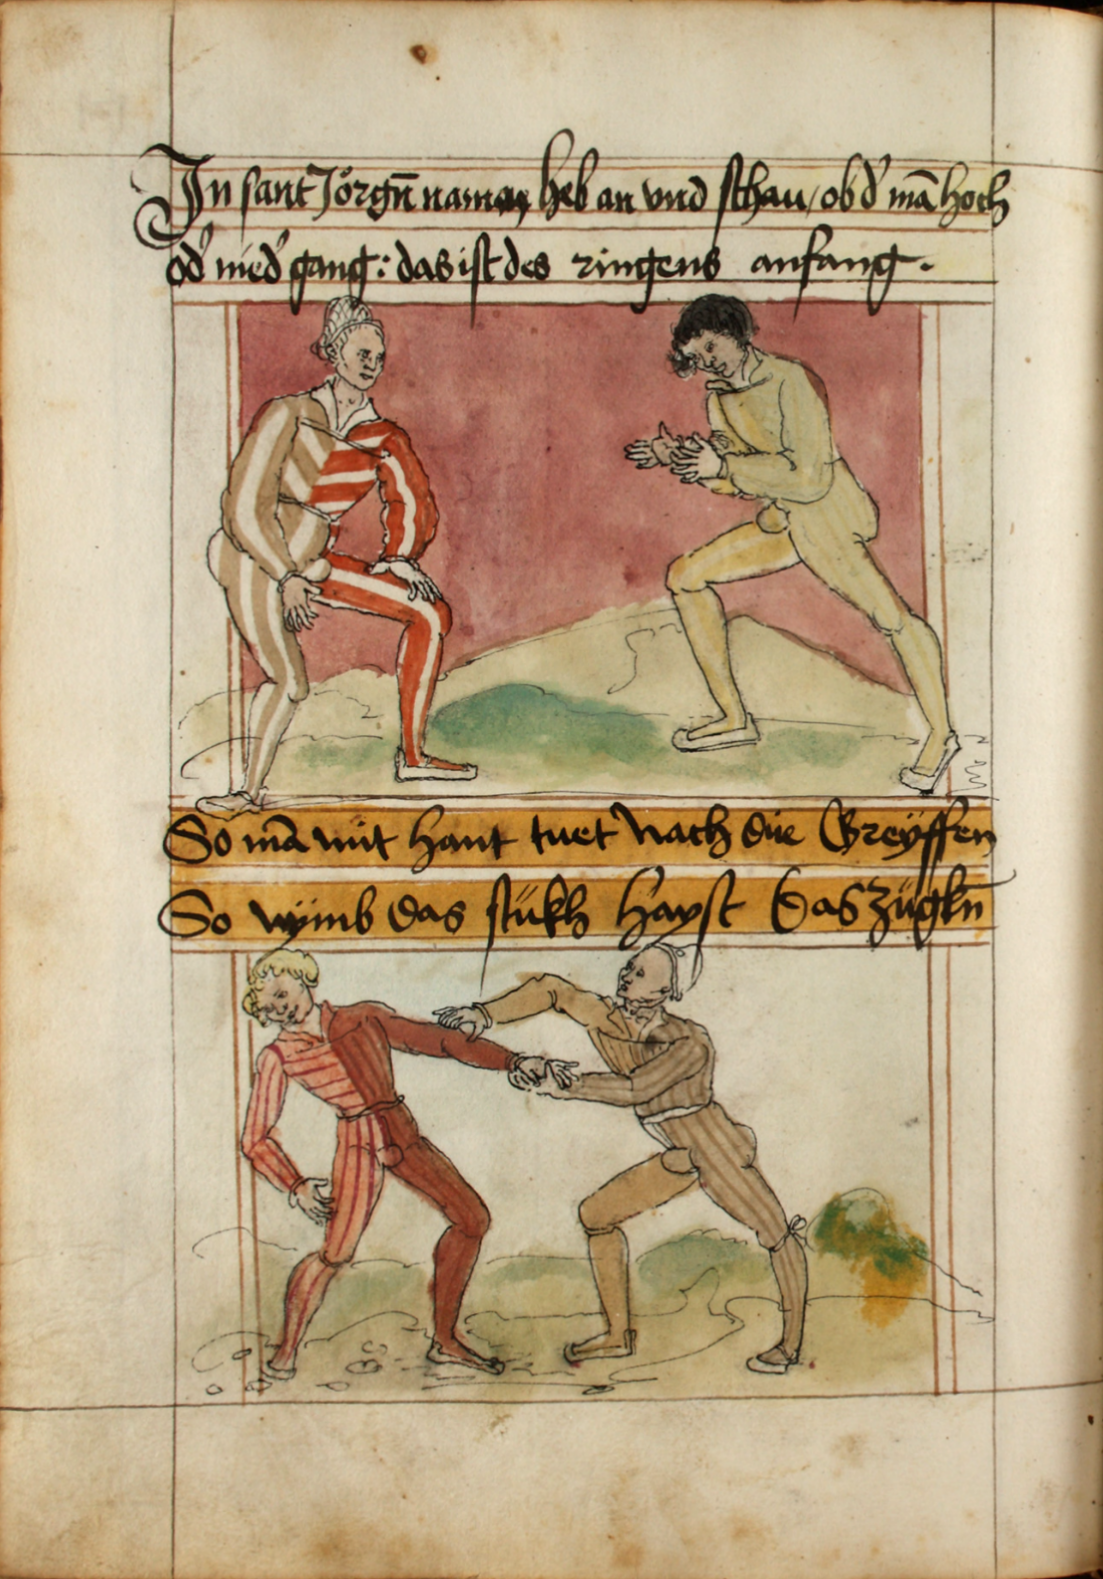 In sant Jörgn̄ namen heb an vnd schau / ob d' mā hoch
od' nied' gang : das ist des ringens anfang .
So mā mit hant tuet nach die Greyffen
So nymb das stükh hayst Das Zügkn̄